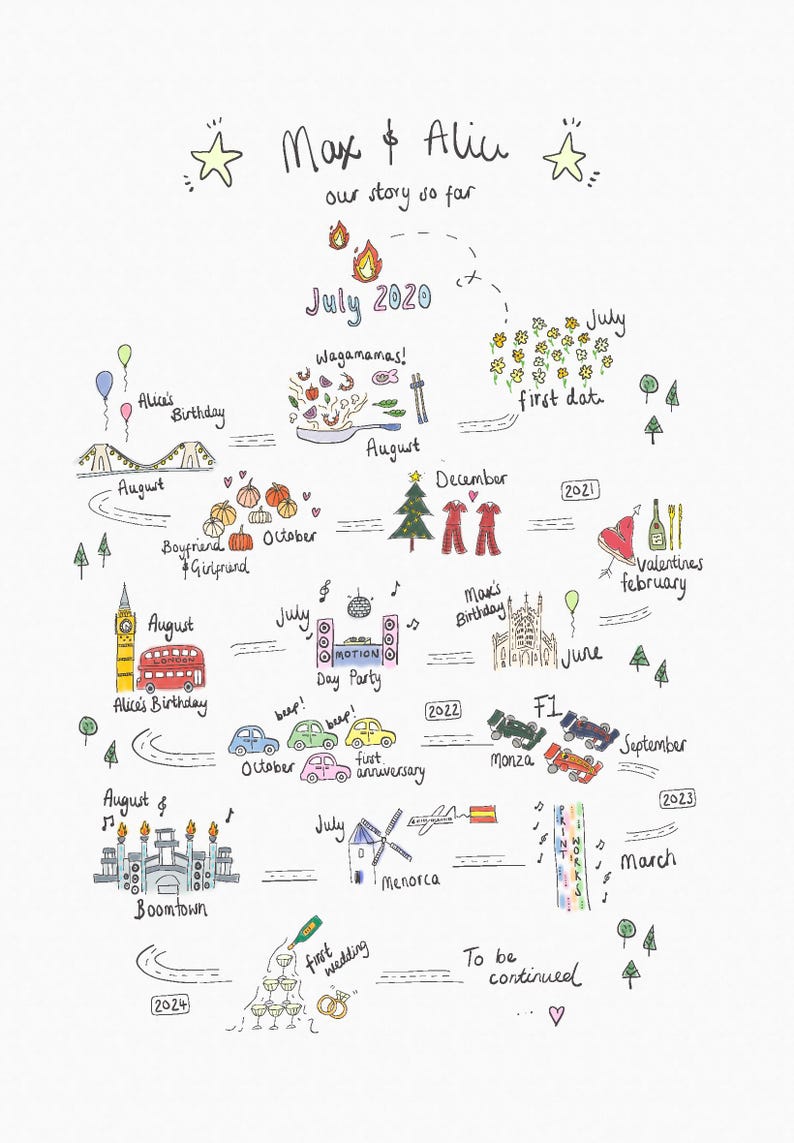 Max & Alice
our story so far
July 2020
July
first date
Wagamamas!
August
Alice's
Birthday
August
Boyfriend
& Girlfriend
October
December
2021
Valentines
february
Max's
Birthday
June
July
MOTION
Day Party
August
LONDON
Alice's Birthday
beep! beep!
October
first
anniversary
2022
F1
Monza
September
2023
March
PRINT WORKS
July
Menorca
August
Boomtown
2024
first
wedding
To be
continued
...